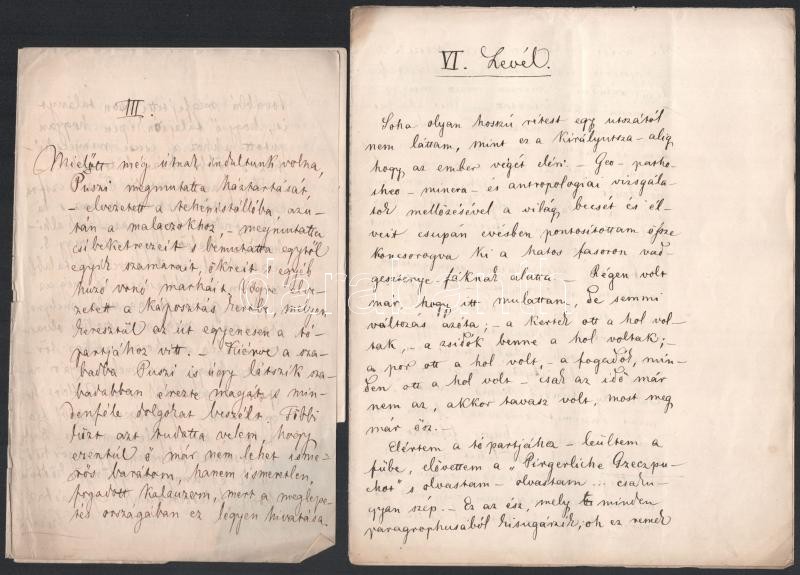 III.
Mielőtt még útnak indultunk volna,
Puszi megmutatta háztartását
– elvezetett a tehénistállóba, azu-
tán a malaczokhoz, – megmutatta
csibeketreczeit s bemutatta egytől
egyik szamarait, ökreit s egyéb
huzó vonó marháit. Végre elve-
zetett a káposztás kertbe, melyen
keresztűl az út egyenesen a tó-
partjához vitt. – Kiérve a sza-
badba Puszi is úgy látszik sza-
badabban érezte magát s min-
denféle dolgokat beszélt. Többi
közt azt tudatta velem, hogy
ezentúl ő már nem lehet isme-
rős barátom, hanem ismeretlen,
fogadott kalauzom, mert a meglepe-
tés országában ez legyen hivatása.
VI. Levél.
Soha olyan hosszú rétest egy utczától
nem láttam, mint ez a Királyutsza – alig
hogy az ember végét éléri. – Geo – patho
theo – minera – és antropologiai vizsgála-
tok mellőzésével a világ becsét és él-
veit csupán evésben pontosítottam össze
koncsorogva ki a hatos fasoron vad-
gesztenye fáknak alatta. – Régen volt
már, hogy itt mulattam, de semmi
változás azóta; – a kertek ott a hol vol-
tak, – a zsidók benne a hol voltak; –
a por ott a hol volt, – a fogadók, min-
den ott a hol volt – csak az idő már
nem az, akkor tavasz volt, most meg
már ősz. –
Elértem a tó partjához – leültem a
fűbe, elővettem a „Pirgerliche
s olvastam – olvastam ... csaku-
gyan szép. – Ez az ész, mely minden
paragrophusából kisugárzik, oh ez remek
darabanth